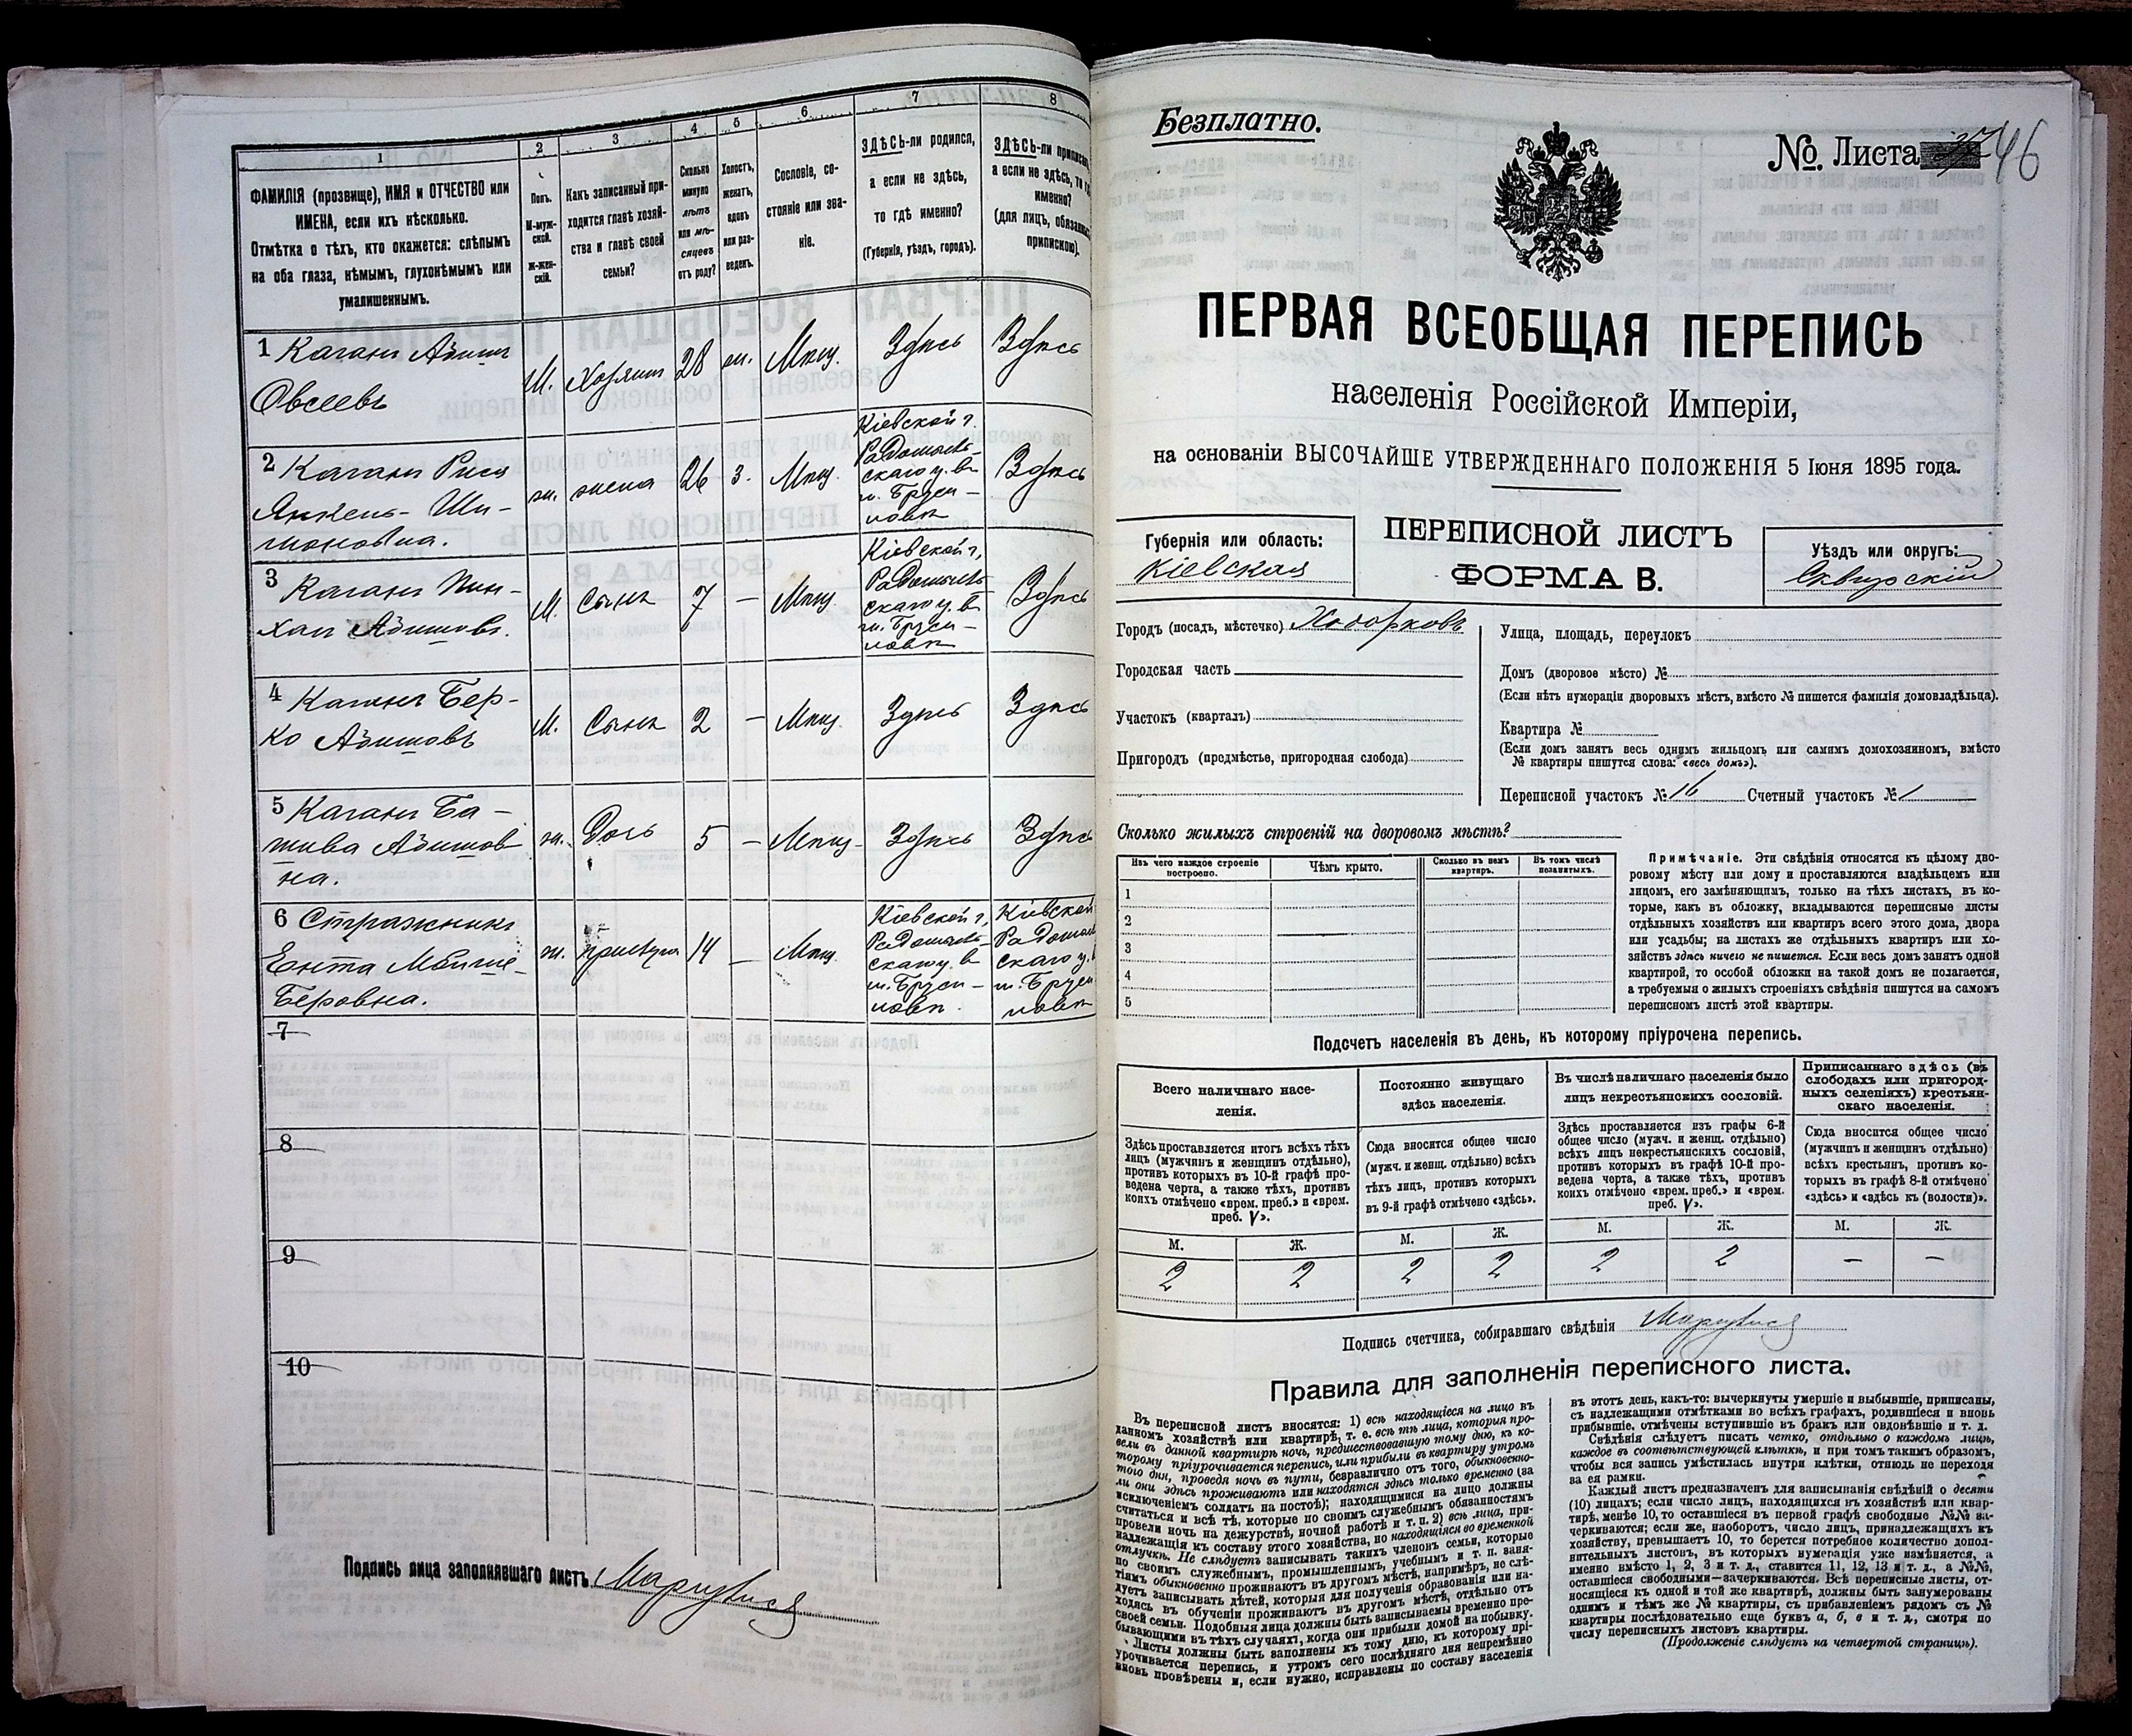 1
2
3
4
5
6
7
8
ФАМИЛІЯ (прозвище), ИМЯ и ОТЧЕСТВО или
ИМЕНА, если ихъ нѣсколько.
Отмѣтка о тѣхъ, кто окажется: слѣпымъ
на оба глаза, нѣмымъ, глухонѣмымъ или
умалишеннымъ.
Полъ.
М-муж-
ской.
Ж-жен-
скій.
Какъ записанный при-
ходится главѣ хозяй-
ства и главѣ своей
семьи?
Сколько
минуло
лѣтъ
или мѣ-
сяцевъ
отъ роду?
Холостъ,
женатъ,
вдовъ
или раз-
веденъ.
Сословіе, со-
стояніе или зва-
ніе.
ЗДѢСЬ-ли родился,
а если не здѣсь,
то гдѣ именно?
(Губернія, уѣздъ, городъ).
ЗДѢСЬ-ли приписанъ,
а если не здѣсь, то гдѣ
именно?
(для лицъ, обязанныхъ
припискою).
1 Каганъ Абишъ
Овсеевъ
М. Хозяинъ 28 ж. Мѣщ. Здѣсь Здѣсь
2 Каганъ Рися
Янкель-Ши-
моновна.
ж. жена 26 з. Мѣщ.
Кіевской г.
Радомысль-
скаго у. въ
м. Бруси-
ловѣ
Здѣсь
3 Каганъ Пин-
хас Абишовъ.
М. Сынъ 7 — Мѣщ.
Кіевской г,
Радомысль-
скаго у. въ
м. Бруси-
ловѣ
Здѣсь
4 Каганъ Бер-
ко Абишовъ
М. Сынъ 2 — Мѣщ. Здѣсь Здѣсь
5 Каганъ Ба-
шива Абишов
на.
ж. Дочь 5 — Мѣщ. Здѣсь Здѣсь
6 Стражникъ
Ента
Беровна.
ж. прислуга 14 — Мѣщ.
Кіевской г,
Радомысль-
скаго у. въ
м. Бруси-
ловѣ.
Кіевской
Радомысль
скаго у.
м. Бруси
ловѣ
7
8
9
10
Подпись лица заполнявшаго листъ
Безплатно.
№ Листа 46
ПЕРВАЯ ВСЕОБЩАЯ ПЕРЕПИСЬ
населенія Россійской Имперіи,
на основаніи ВЫСОЧАЙШЕ УТВЕРЖДЕННАГО ПОЛОЖЕНІЯ 5 Іюня 1895 года.
Губернія или область:
Кіевская
ПЕРЕПИСНОЙ ЛИСТЪ
ФОРМА В.
Уѣздъ или округъ:
Сквирскій
Городъ (посадъ, мѣстечко) Ходорковъ
Городская часть
Участокъ (кварталъ)
Пригородъ (предмѣстье, пригородная слобода)
Улица, площадь, переулокъ
Домъ (дворовое мѣсто) №
(Если нѣтъ нумераціи дворовыхъ мѣстъ, вмѣсто № пишется фамилія домовладѣльца).
Квартира №
(Если домъ занятъ весь однимъ жильцомъ или самимъ домохозяиномъ, вмѣсто
№ квартиры пишутся слова: «весь домъ»).
Переписной участокъ № 16 Счетный участокъ № 1
Сколько жилыхъ строеній на дворовомъ мѣстѣ?
Изъ чего каждое строеніе
построено.
Чѣмъ крыто.
Сколько въ немъ
квартиръ.
Въ томъ числѣ
незанятыхъ.
1
2
3
4
5
Примѣчаніе. Эти свѣдѣнія относятся къ цѣлому дво-
ровому мѣсту или дому и проставляются владѣльцемъ или
лицомъ, его замѣняющимъ, только на тѣхъ листахъ, въ ко-
торые, какъ въ обложку, вкладываются переписные листы
отдѣльныхъ хозяйствъ или квартиръ всего этого дома, двора
или усадьбы; на листахъ же отдѣльныхъ квартиръ или хо-
зяйствъ здѣсь ничего не пишется. Если весь домъ занятъ одной
квартирой, то особой обложки на такой домъ не полагается,
а требуемыя о жилыхъ строеніяхъ свѣдѣнія пишутся на самомъ
переписномъ листѣ этой квартиры.
Подсчетъ населенія въ день, къ которому пріурочена перепись.
Всего наличнаго насе-
ленія.
Постоянно живущаго
здѣсь населенія.
Въ числѣ наличнаго населенія было
лицъ некрестьянскихъ сословій.
Приписаннаго здѣсь (въ
слободахъ или пригород-
ныхъ селеніяхъ) крестьян-
скаго населенія.
Здѣсь проставляется итогъ всѣхъ тѣхъ
лицъ (мужчинъ и женщинъ отдѣльно),
противъ которыхъ въ 10-й графѣ про-
ведена черта, а также тѣхъ, противъ
коихъ отмѣчено «врем. преб.» и «врем.
преб. V».
Сюда вносится общее число
(мужч. и женщ. отдѣльно) всѣхъ
тѣхъ лицъ, противъ которыхъ
въ 9-й графѣ отмѣчено «здѣсь».
Здѣсь проставляется изъ графы 6-й
общее число (мужч. и женщ. отдѣльно)
всѣхъ лицъ некрестьянскихъ сословій,
противъ которыхъ въ графѣ 10-й про-
ведена черта, а также тѣхъ, противъ
коихъ отмѣчено «врем. преб.» и «врем.
преб. V».
Сюда вносится общее число
(мужчинъ и женщинъ отдѣльно)
всѣхъ крестьянъ, противъ ко-
торыхъ въ графѣ 8-й отмѣчено
«здѣсь» и «здѣсь къ (волости)».
М. Ж. М. Ж. М. Ж. М. Ж.
2 2 2 2 2 2 — —
Подпись счетчика, собиравшаго свѣдѣнія
Правила для заполненія переписного листа.
Въ переписной листъ вносятся: 1) всѣ находящіеся на лицо въ
данномъ хозяйствѣ или квартирѣ, т. е. всѣ тѣ лица, которыя про-
вели въ данной квартирѣ ночь, предшествовавшую тому дню, къ ко-
торому пріурочивается перепись, или прибыли въ квартиру утромъ
того дня, проведя ночь въ пути, безразлично отъ того, обыкновенно-
ли они здѣсь проживаютъ или находятся здѣсь только временно (за
исключеніемъ солдатъ на постоѣ); находящимися на лицо должны
считаться и всѣ тѣ, которые по своимъ служебнымъ обязанностямъ
провели ночь на дежурствѣ, ночной работѣ и т. п. 2) всѣ лица, при-
надлежащія къ составу этого хозяйства, но находящіяся во временной
отлучкѣ. Не слѣдуетъ записывать такихъ членовъ семьи, которые
по своимъ служебнымъ, промышленнымъ, учебнымъ и т. п. заня-
тіямъ обыкновенно проживаютъ въ другомъ мѣстѣ, напримѣръ, не слѣ-
дуетъ записывать дѣтей, которыя для полученія образованія или на-
ходясь въ обученіи проживаютъ въ другомъ мѣстѣ, отдѣльно отъ
своей семьи. Подобныя лица должны быть записываемы временно пре-
бывающими въ тѣхъ случаяхъ, когда они прибыли домой на побывку.
Листы должны быть заполнены къ тому дню, къ которому прі-
урочивается перепись, и утромъ сего послѣдняго дня непремѣнно
вновь провѣрены и, если нужно, исправлены по составу населенія
въ этотъ день, какъ-то: вычеркнуты умершіе и выбывшіе, приписаны,
съ надлежащими отмѣтками во всѣхъ графахъ, родившіеся и вновь
прибывшіе, отмѣчены вступившіе въ бракъ или овдовѣвшіе и т. д.
Свѣдѣнія слѣдуетъ писать четко, отдѣльно о каждомъ лицѣ,
каждое въ соотвѣтствующей клѣткѣ, и при томъ такимъ образомъ,
чтобы вся запись умѣстилась внутри клѣтки, отнюдь не переходя
за ея рамки.
Каждый листъ предназначенъ для записыванія свѣдѣній о десяти
(10) лицахъ; если число лицъ, находящихся въ хозяйствѣ или квар-
тирѣ, менѣе 10, то оставшіеся въ первой графѣ свободные №№ за-
черкиваются; если же, наоборотъ, число лицъ, принадлежащихъ къ
хозяйству, превышаетъ 10, то берется потребное количество допол-
нительныхъ листовъ, въ которыхъ нумерація уже измѣняется, а
именно вмѣсто 1, 2, 3 и т. д., ставится 11, 12, 13 и т. д., а №№,
оставшіеся свободными—зачеркиваются. Всѣ переписные листы, от-
носящіеся къ одной и той же квартирѣ, должны быть занумерованы
однимъ и тѣмъ же № квартиры, съ прибавленіемъ рядомъ съ №
квартиры послѣдовательно еще буквъ а, б, в и т. д., смотря по
числу переписныхъ листовъ квартиры.
(Продолженіе слѣдуетъ на четвертой страницѣ).